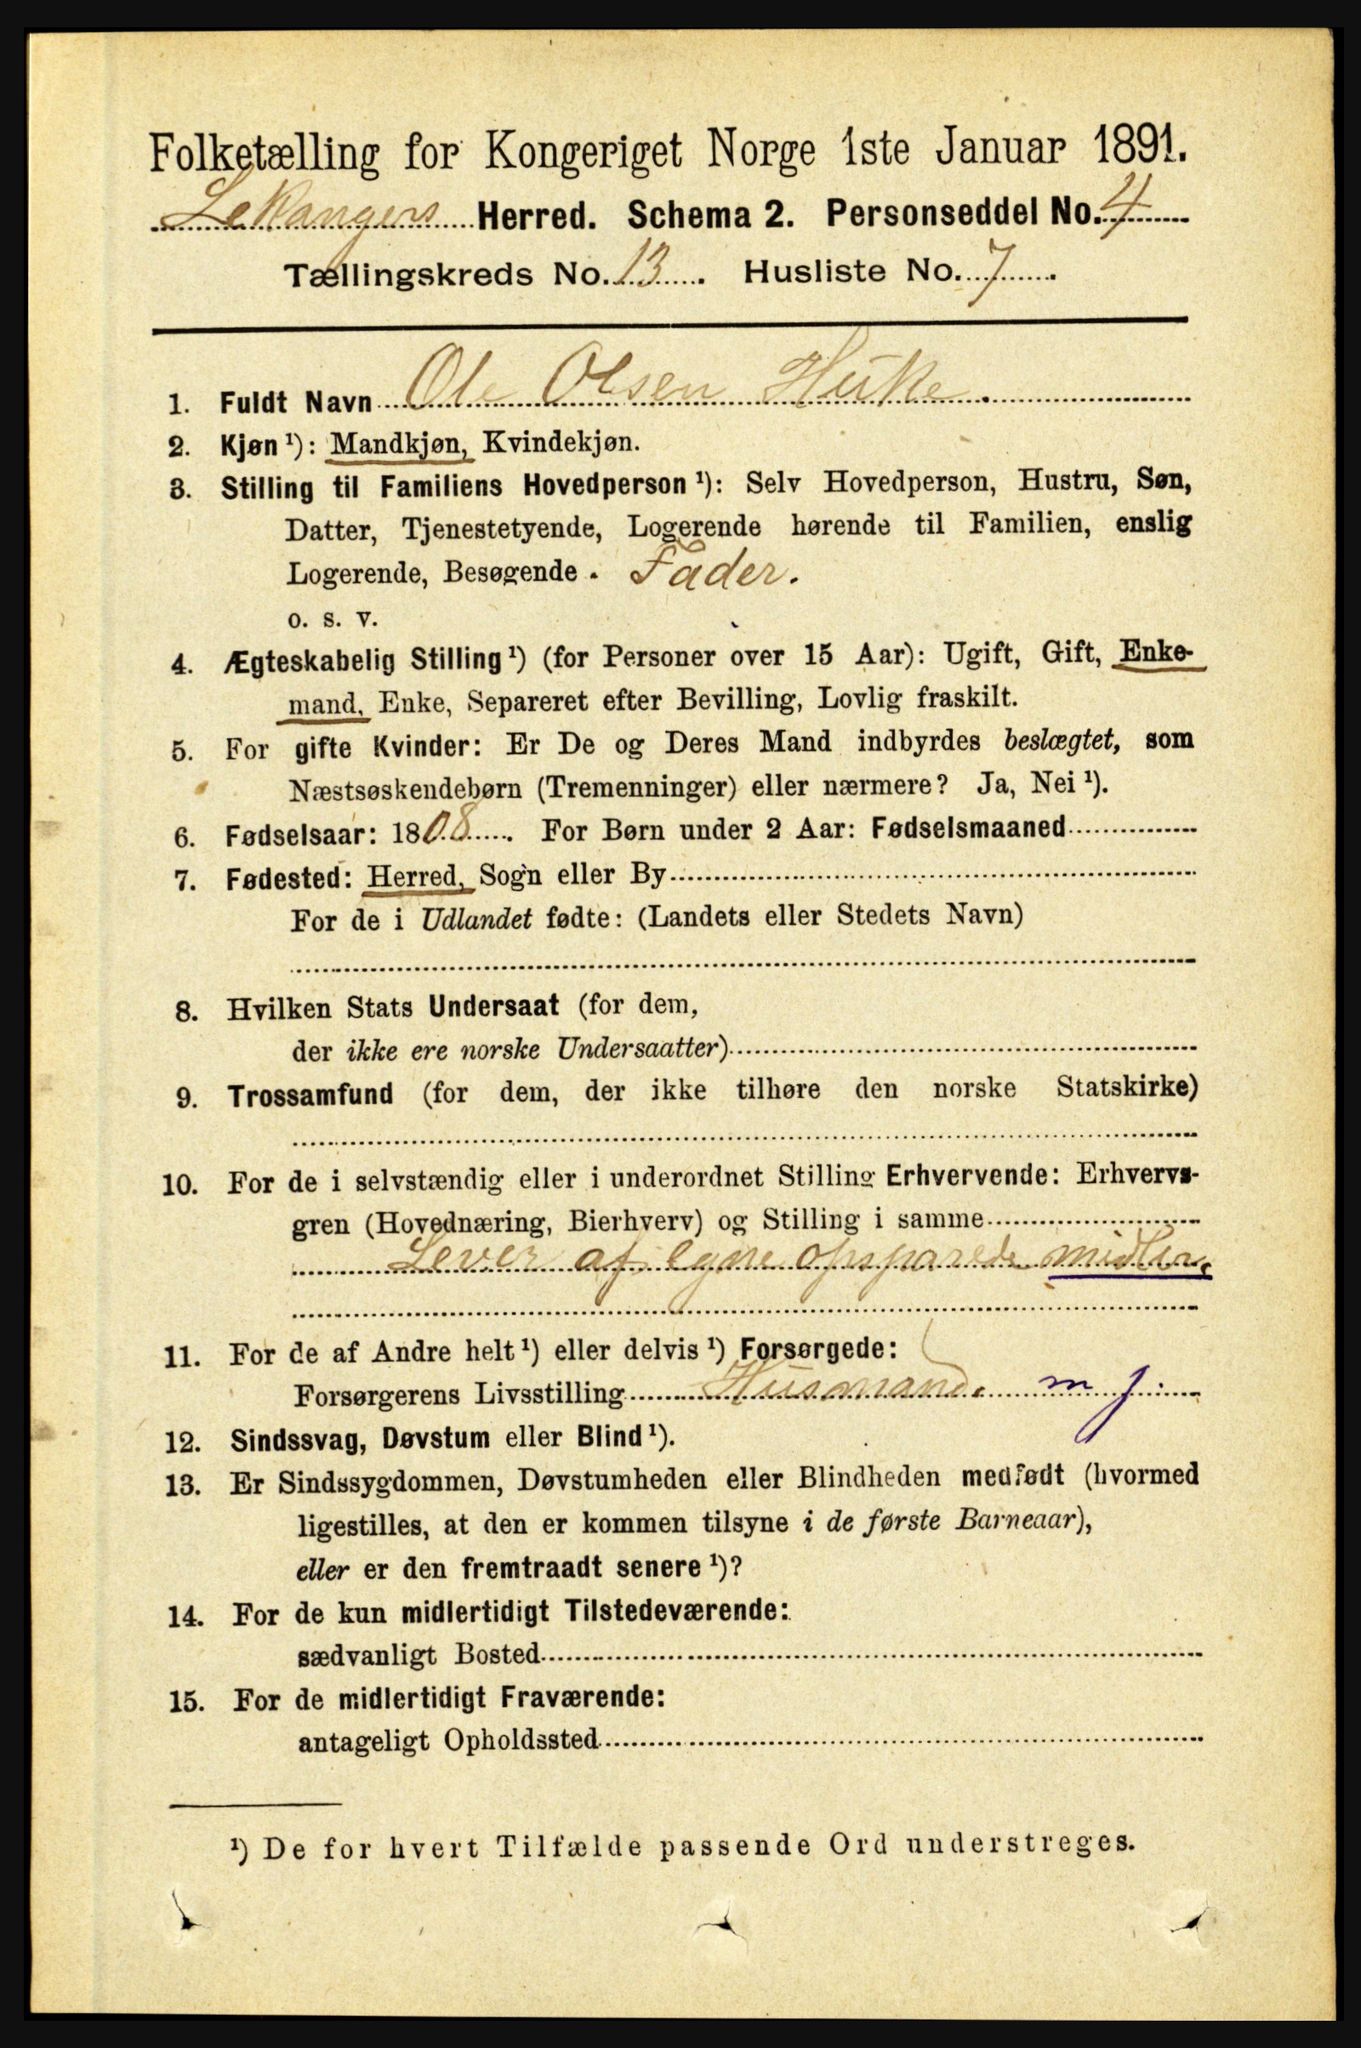 Folketælling for Kongeriget Norge 1ste Januar 1891.
Lekangers Herred. Schema 2. Personseddel No. 4
Tællingskreds No. 13. Husliste No. 7.
1. Fuldt Navn Ole Olsen Huke.
2. Kjøn ¹): Mandkjøn, Kvindekjøn.
3. Stilling til Familiens Hovedperson ¹): Selv Hovedperson, Hustru, Søn,
Datter, Tjenestetyende, Logerende hørende til Familien, enslig
Logerende, Besøgende . Fader.
o. s. v.
4. Ægteskabelig Stilling ¹) (for Personer over 15 Aar): Ugift, Gift, Enke-
mand, Enke, Separeret efter Bevilling, Lovlig fraskilt.
5. For gifte Kvinder: Er De og Deres Mand indbyrdes beslægtet, som
Næstsøskendebørn (Tremenninger) eller nærmere? Ja, Nei ¹).
6. Fødselsaar: 1808. For Børn under 2 Aar: Fødselsmaaned
7. Fødested: Herred, Sogn eller By
For de i Udlandet fødte: (Landets eller Stedets Navn)
8. Hvilken Stats Undersaat (for dem,
der ikke ere norske Undersaatter)
9. Trossamfund (for dem, der ikke tilhøre den norske Statskirke)
10. For de i selvstændig eller i underordnet Stilling Erhvervende: Erhvervs-
gren (Hovednæring, Bierhverv) og Stilling i samme
Lever af egne opsparede midler.
11. For de af Andre helt ¹) eller delvis ¹) Forsørgede:
Forsørgerens Livsstilling Husmand. m j.
12. Sindssvag, Døvstum eller Blind ¹).
13. Er Sindssygdommen, Døvstumheden eller Blindheden medfødt (hvormed
ligestilles, at den er kommen tilsyne i de første Barneaar),
eller er den fremtraadt senere ¹)?
14. For de kun midlertidigt Tilstedeværende:
sædvanligt Bosted
15. For de midlertidigt Fraværende:
antageligt Opholdssted
¹) De for hvert Tilfælde passende Ord understreges.